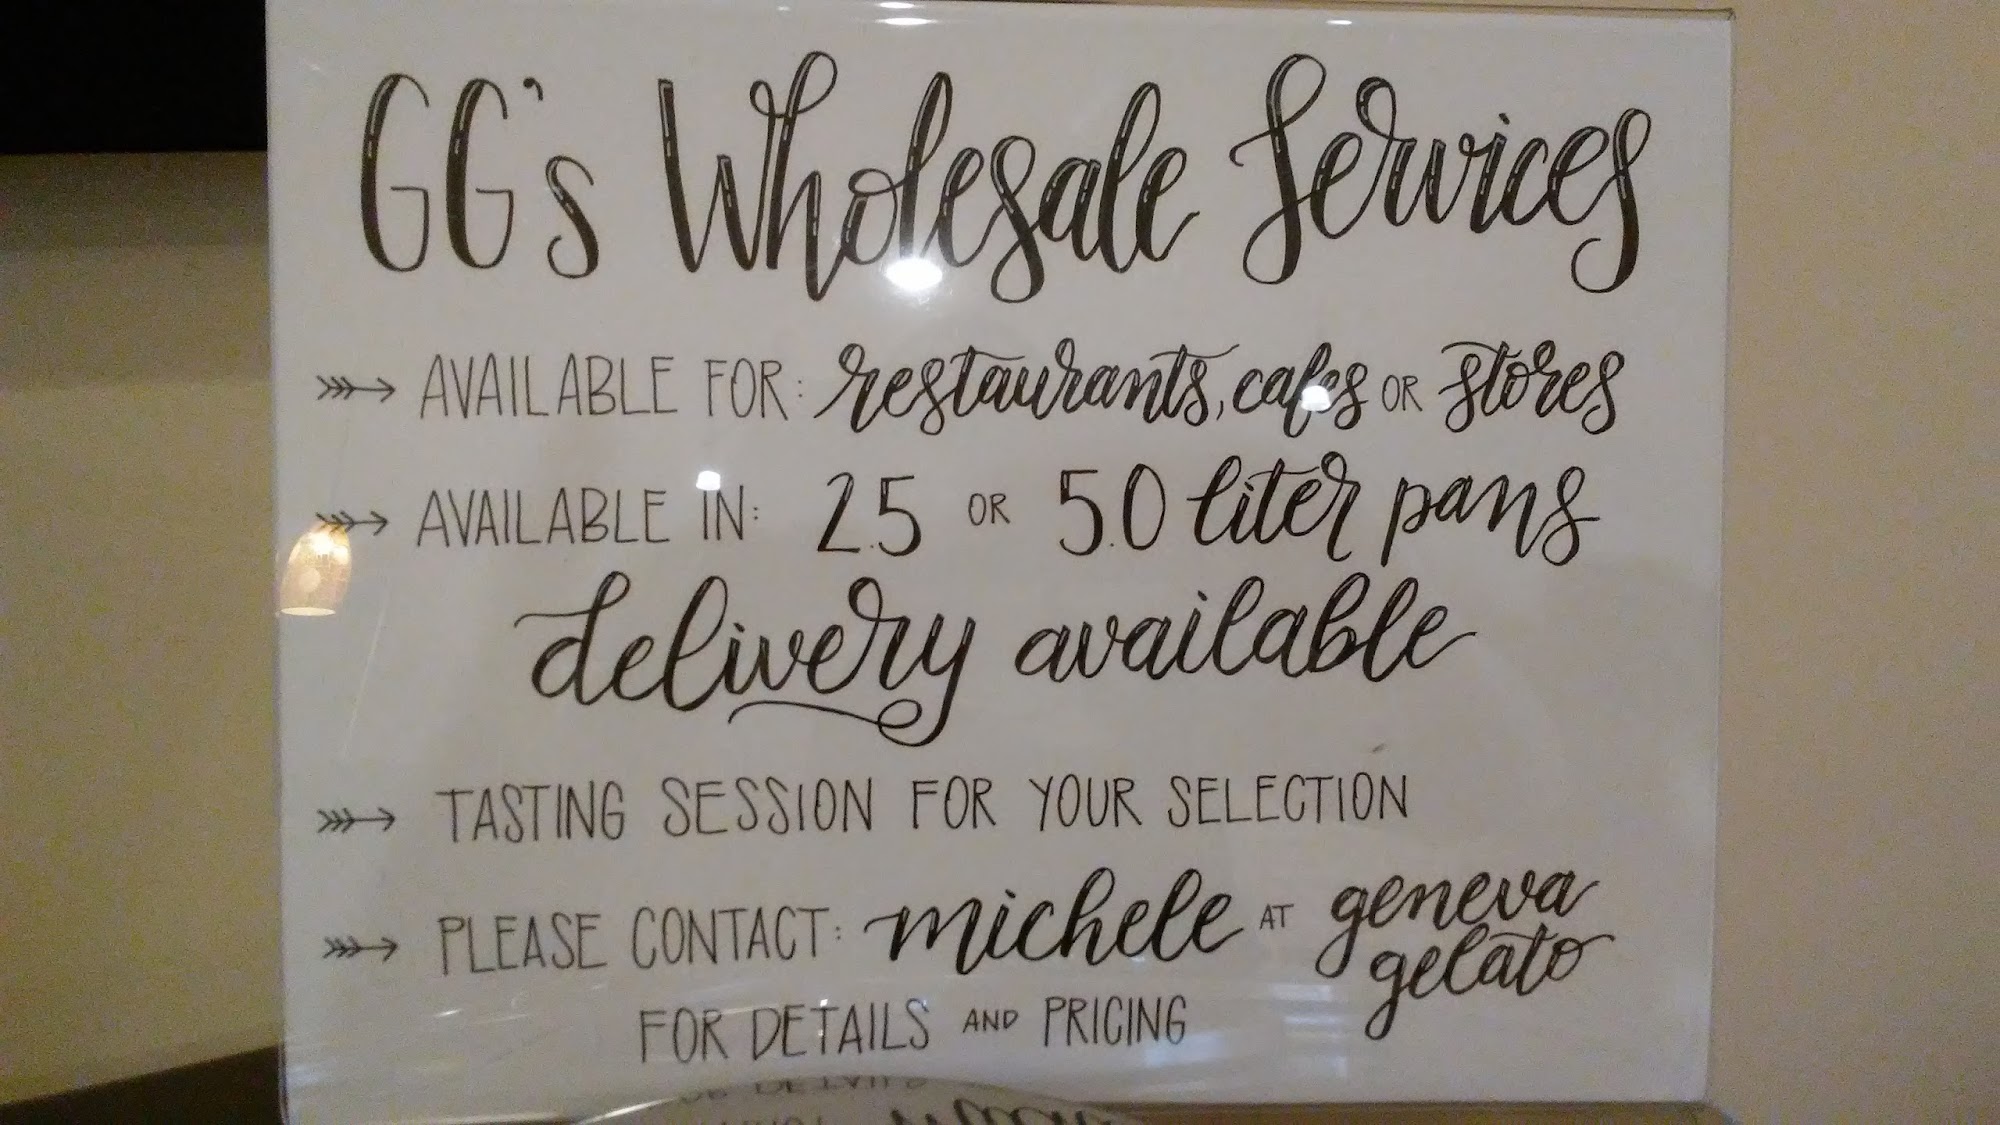 GG's Wholesale Services
AVAILABLE FOR: restaurants, cafes OR stores
AVAILABLE IN: 2.5 OR 5.0 liter pans
delivery available
TASTING SESSION FOR YOUR SELECTION
PLEASE CONTACT: michele AT geneva
gelato
FOR DETAILS AND PRICING